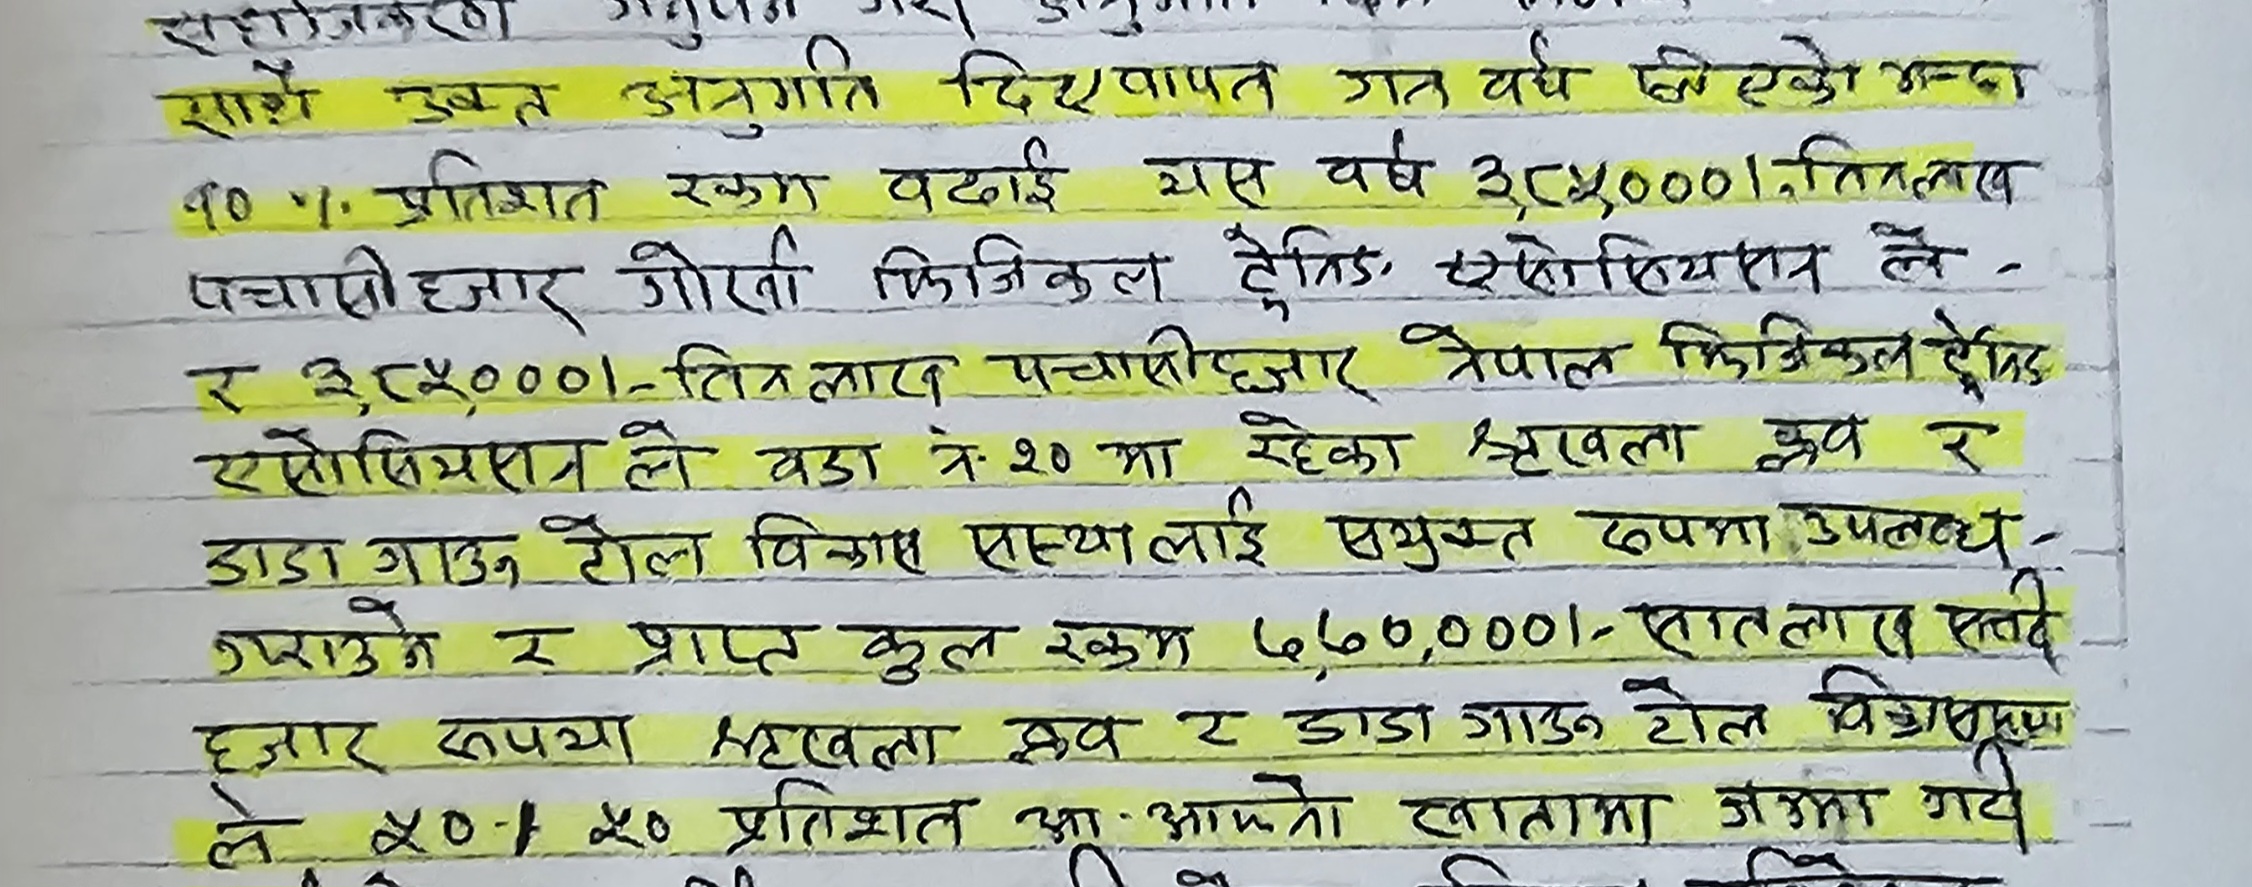 साथै उक्त अनुमति दिए वापत गत वर्ष लिएको भन्दा
१० %. प्रतिशत रकम वढाई यस वर्ष ३,८५,०००।. तिनलाख
पचासी हजार गोर्खा फिजिकल ट्रेनिङ एसोसियसन ले -
र ३,८५,०००।- तिन लाख पचासी हजार नेपाल फिजिकल ट्रेनिङ
एसोसियसन ले वडा नं. २० मा रहेका श्रृखला क्लव र
डाडा गाऊ टोल विकास सस्था लाई सयुक्त रूपमा उपलव्ध -
गराउने र प्राप्त कुल रकम ७,७०,०००।- सातलाख सत्तरी
हजार रूपया श्रृखला क्लव र डाडा गाऊ टोल विकास सस्था
ले ५०-। ५० प्रतिशत आ-आफ्नो खातामा जम्मा गर्दा